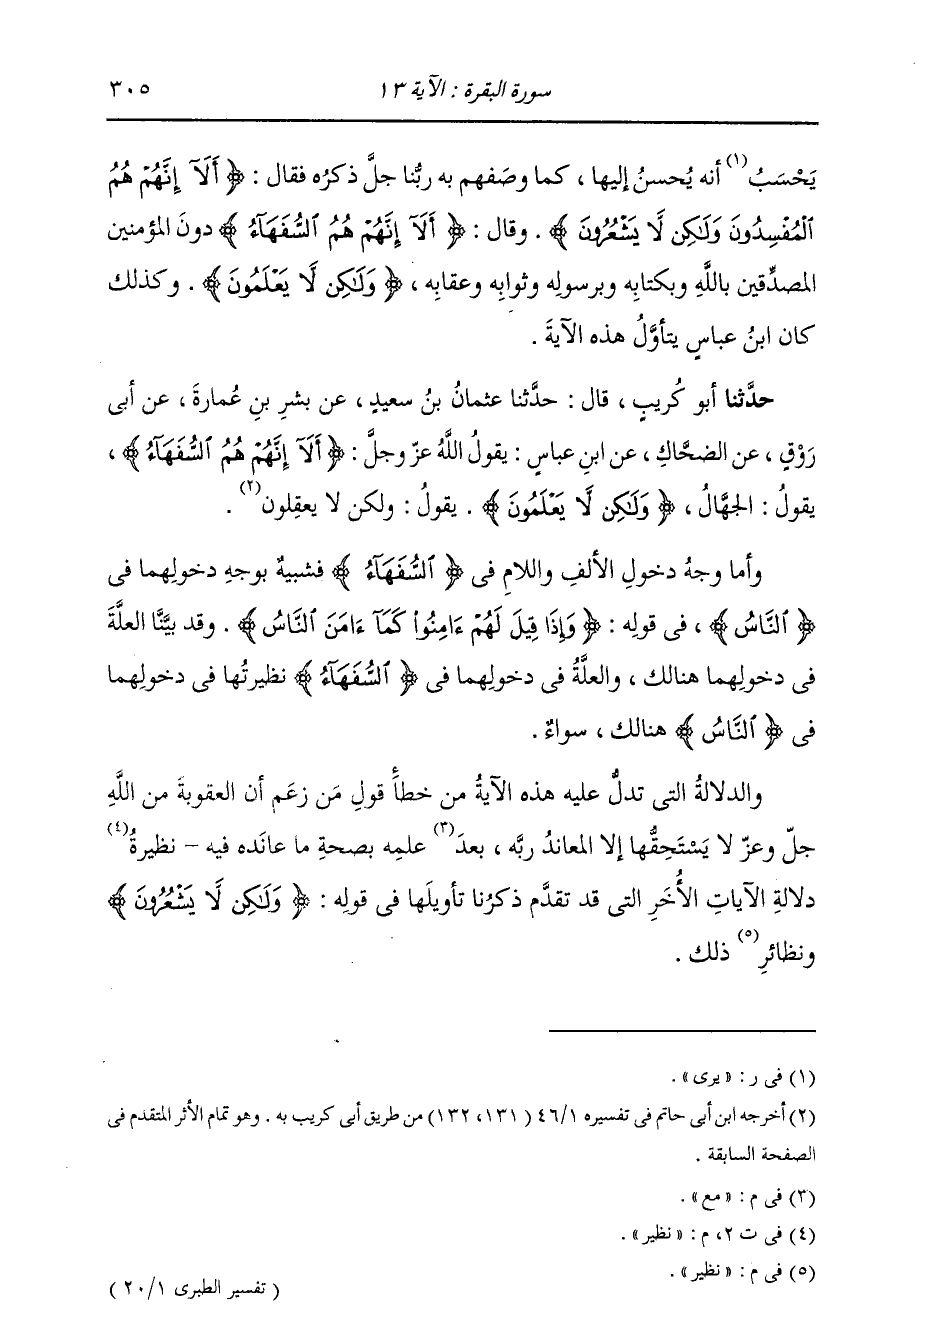 سورة البقرة : الآية ١٣
٣٠٥
يَحْسَبُ(١) أنه يُحسنُ إليها ، كما وصَفهم به ربُّنا جلَّ ذكرُه فقال : ﴿ أَلَآ إِنَّهُمْ هُمُ
ٱلْمُفْسِدُونَ وَلَٰكِن لَّا يَشْعُرُونَ ﴾ . وقال : ﴿ أَلَآ إِنَّهُمْ هُمُ ٱلسُّفَهَآءُ ﴾ دونَ المؤمنين
المصدِّقين باللَّهِ وبكتابِه وبرسولِه وثوابِه وعقابِه ، ﴿ وَلَٰكِن لَّا يَعْلَمُونَ ﴾ . وكذلك
كان ابنُ عباسٍ يتأوَّلُ هذه الآيةَ .
حدَّثنا أبو كُريبٍ ، قال : حدَّثنا عثمانُ بنُ سعيدٍ ، عن بشرِ بنِ عُمارةَ ، عن أبى
رَوْقٍ ، عن الضحَّاكِ ، عن ابنِ عباسٍ : يقولُ اللَّهُ عزّ وجلَّ : ﴿ أَلَآ إِنَّهُمْ هُمُ ٱلسُّفَهَآءُ ﴾ ،
يقولُ : الجهَّالُ ، ﴿ وَلَٰكِن لَّا يَعْلَمُونَ ﴾ . يقولُ : ولكن لا يعقِلون(٢) .
وأما وجهُ دخولِ الألفِ واللامِ فى ﴿ ٱلسُّفَهَآءُ ﴾ فشبيهٌ بوجهِ دخولِهما فى
﴿ ٱلنَّاسُ ﴾ ، فى قولِه : ﴿ وَإِذَا قِيلَ لَهُمْ ءَامِنُوا۟ كَمَآ ءَامَنَ ٱلنَّاسُ ﴾ . وقد بيَّنَّا العلَّةَ
فى دخولِهما هنالك ، والعلَّةُ فى دخولِهما فى ﴿ ٱلسُّفَهَآءُ ﴾ نظيرتُها فى دخولِهما
فى ﴿ ٱلنَّاسُ ﴾ هنالك ، سواءٌ .
والدلالةُ التى تدلُّ عليه هذه الآيةُ من خطأِ قولِ مَن زعَم أن العقوبةَ من اللَّهِ
جلّ وعزّ لا يَسْتَحِقُّها إلا المعاندُ ربَّه ، بعدَ(٣) علمِه بصحةِ ما عانَده فيه – نظيرةُ(٤)
دلالةِ الآياتِ الأُخَرِ التى قد تقدَّم ذكرُنا تأويلَها فى قولِه : ﴿ وَلَٰكِن لَّا يَشْعُرُونَ ﴾
ونظائرِ(٥) ذلك .
(١) فى ر : « يرى » .
(٢) أخرجه ابن أبى حاتم فى تفسيره ٤٦/١ ( ١٣١، ١٣٢) من طريق أبى كريب به . وهو تمام الأثر المتقدم فى
الصفحة السابقة .
(٣) فى م : « مع » .
(٤) فى ت ٢، م : « نظير » .
(٥) فى م : « نظير » .
( تفسير الطبرى ٢٠/١ )